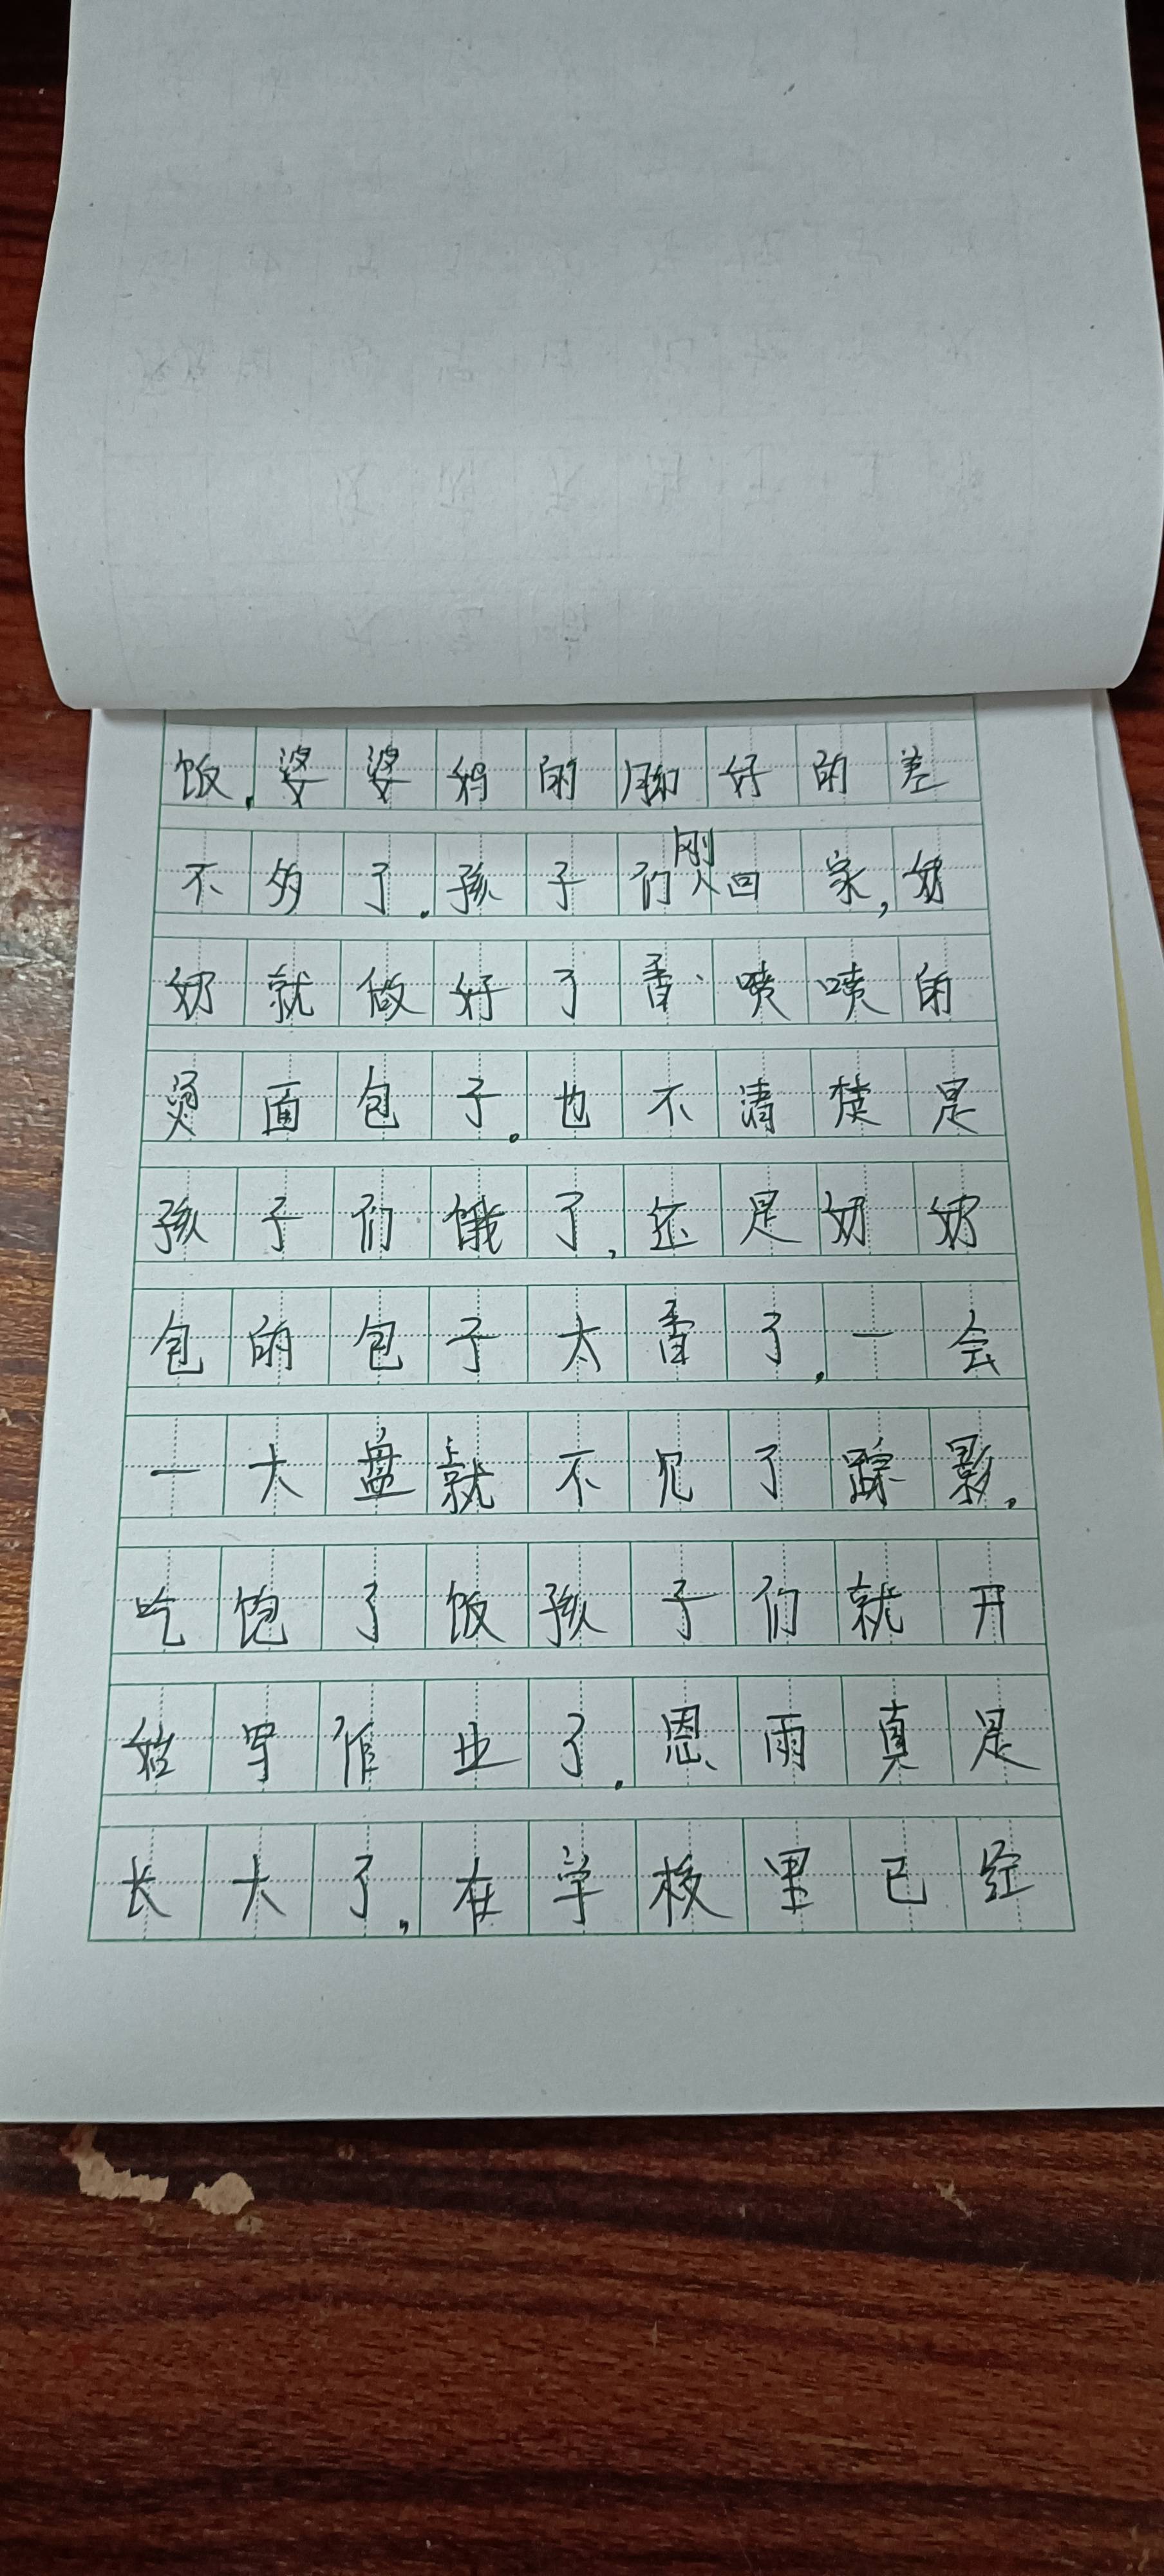 饭.婆婆妈的脚好的差
不多了.孩子们刚回家,奶
奶就做好了香喷喷的
烫面包子。也不清楚是
孩子们饿了,还是奶奶
包的包子太香了,一会
一大盘就不见了踪影.
吃饱了饭孩子们就开
始写作业了.恩雨真是
长大了,在学校里已经